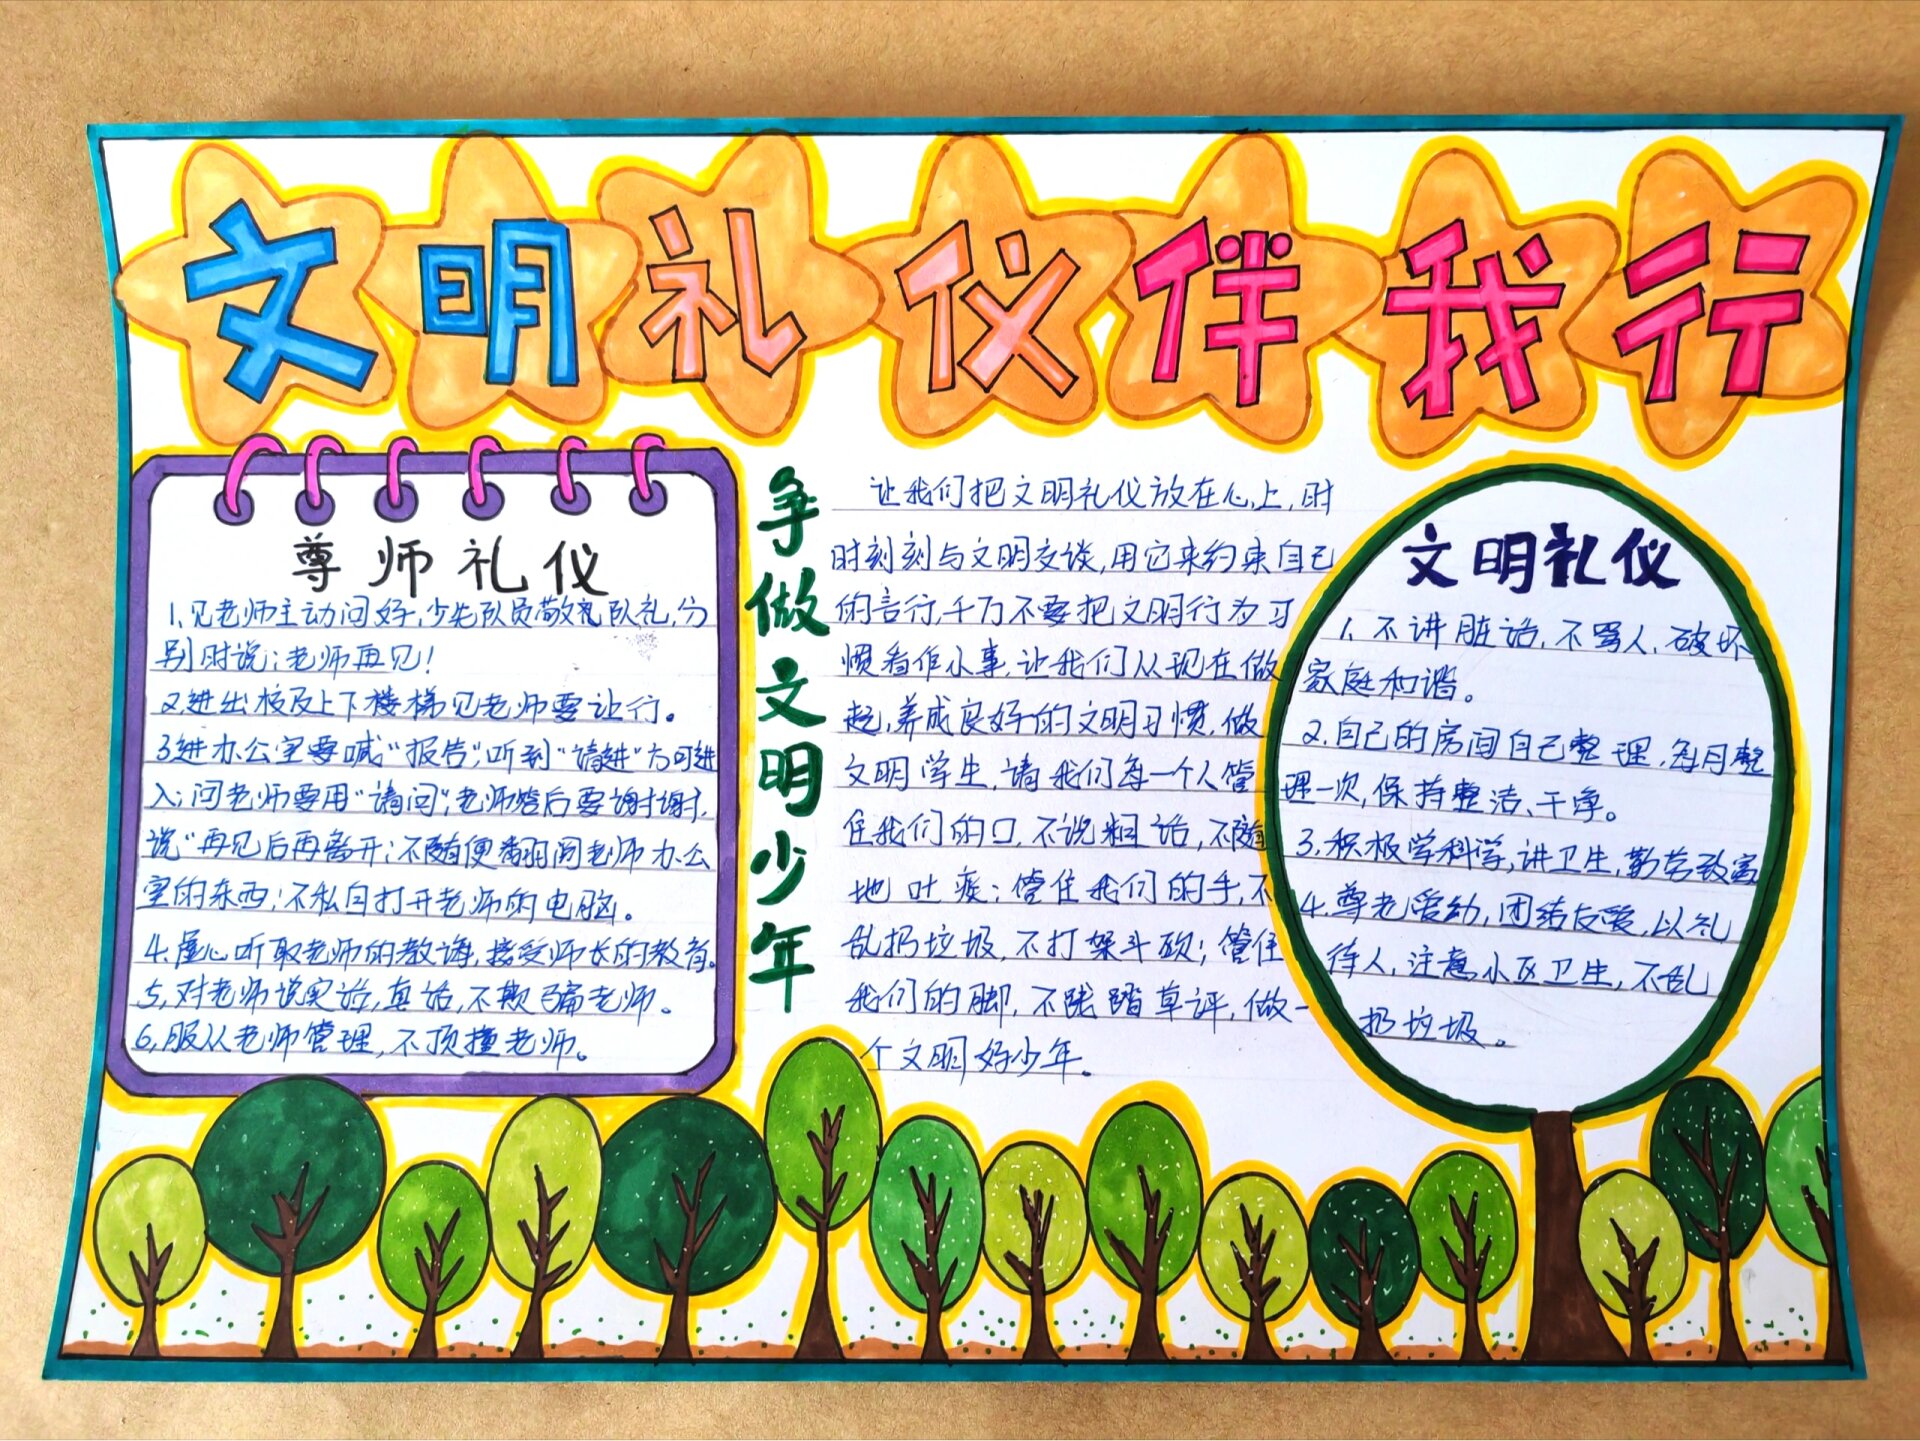 文明礼仪伴我行
尊师礼仪
1、见老师主动问好,少先队员敬礼队礼,分
别时说:老师再见!
2.进出校及上下楼梯见老师要让行。
3进办公室要喊"报告",听到"请进"方可进
入;问老师要用"请问",老师答后要谢谢,
说"再见后再离开;不随便翻阅老师办公
室的东西;不私自打开老师的电脑。
4.虚心听取老师的教诲,接受师长的教育。
5,对老师说实话,真话,不欺骗老师。
6,服从老师管理,不顶撞老师。
争做文明少年
让我们把文明礼仪放在心上,时
时刻刻与文明交谈,用它来约束自己
的言行,千万不要把文明行为习
惯看作小事,让我们从现在做
起,养成良好的文明习惯,做
文明学生,请我们每一个人管
住我们的口,不说粗话,不随
地吐痰;管住我们的手,不
乱扔垃圾,不打架斗殴;管住
我们的脚,不践踏草评,做一
个文明好少年。
文明礼仪
1、不讲脏话,不骂人,破坏
家庭和谐。
2.自己的房间自己整理,每月整
理一次,保持整洁、干净。
3.积极学科学,讲卫生,勤劳致富
4.尊老爱幼,团结友爱,以礼
待人,注意小区卫生,不乱
扔垃圾。